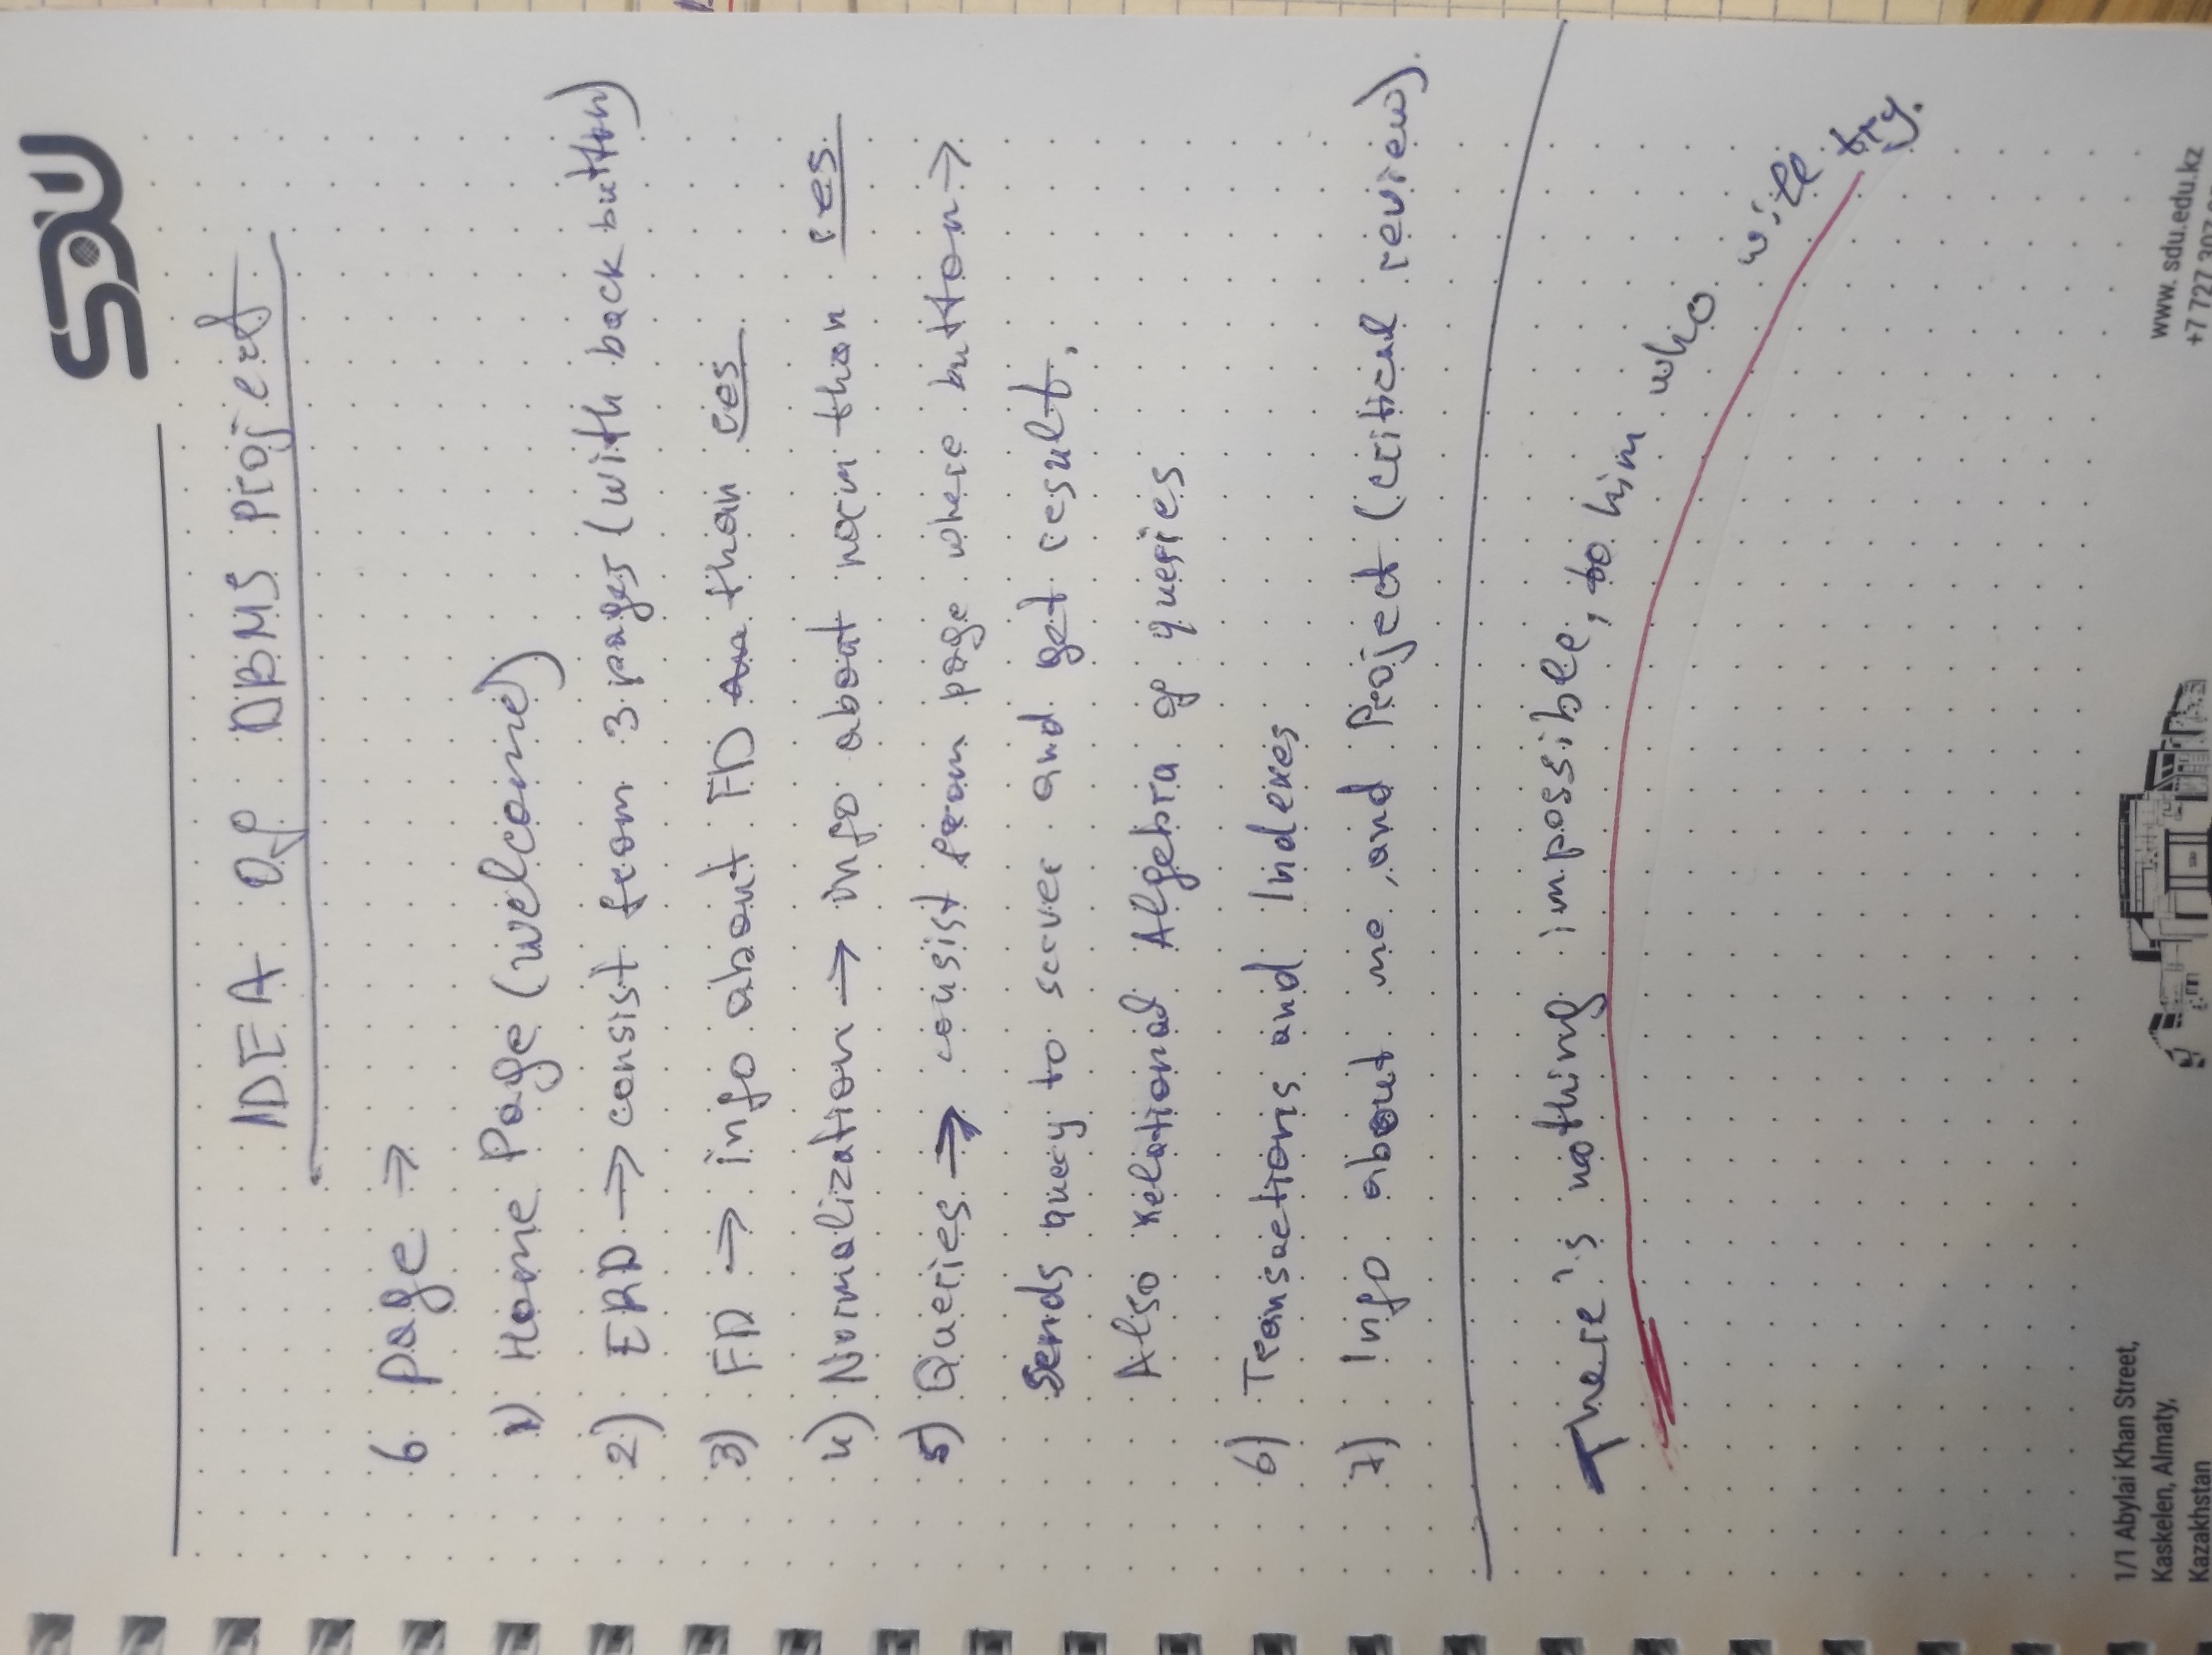 SDU
IDEA Of DBMS project
6 page →
1) Home Page (welcome)
2) ERD → consist from 3 pages (with back button)
3) FD → info about FD than res
4) Normalization → info about norm than res.
5) Queries → consist from page where button →
Sends query to server and get result.
Also Relational Algebra of queries
6) Transactions and Indexes
7) Info about me, and Project (critical review).
There's nothing impossible, to him who will try.
1/1 Abylai Khan Street,
Kaskelen, Almaty,
Kazakhstan
SDU
www. sdu.edu.kz
+7 727 307